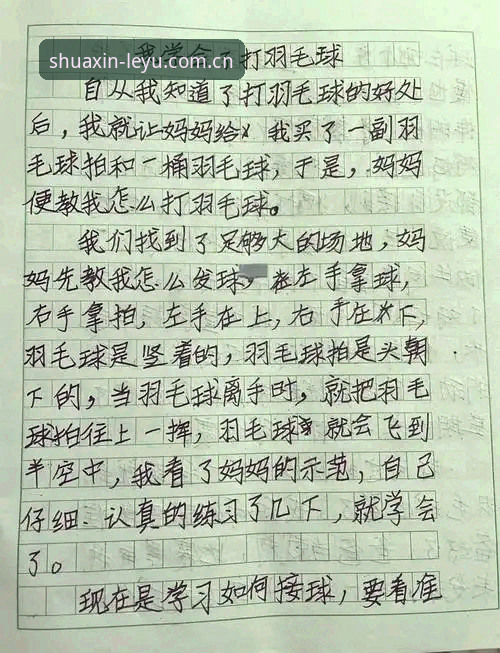 shuaxin-leyu.com.cn
我学会了打羽毛球
自从我知道了打羽毛球的好处
后，我就让妈妈给我买了一副羽
毛球拍和一桶羽毛球，于是，妈妈
便教我怎么打羽毛球。
我们找到了足够大的场地，妈
妈先教我怎么发球，左手拿球，
右手拿拍，左手在上，右手在下，
羽毛球是竖着的，羽毛球拍是头朝
下的，当羽毛球离手时，就把羽毛
球拍往上一挥，羽毛球就会飞到
半空中，我看了妈妈的示范，自己
仔细、认真的练习了几下，就学会
了。
现在是学习如何接球，要看准